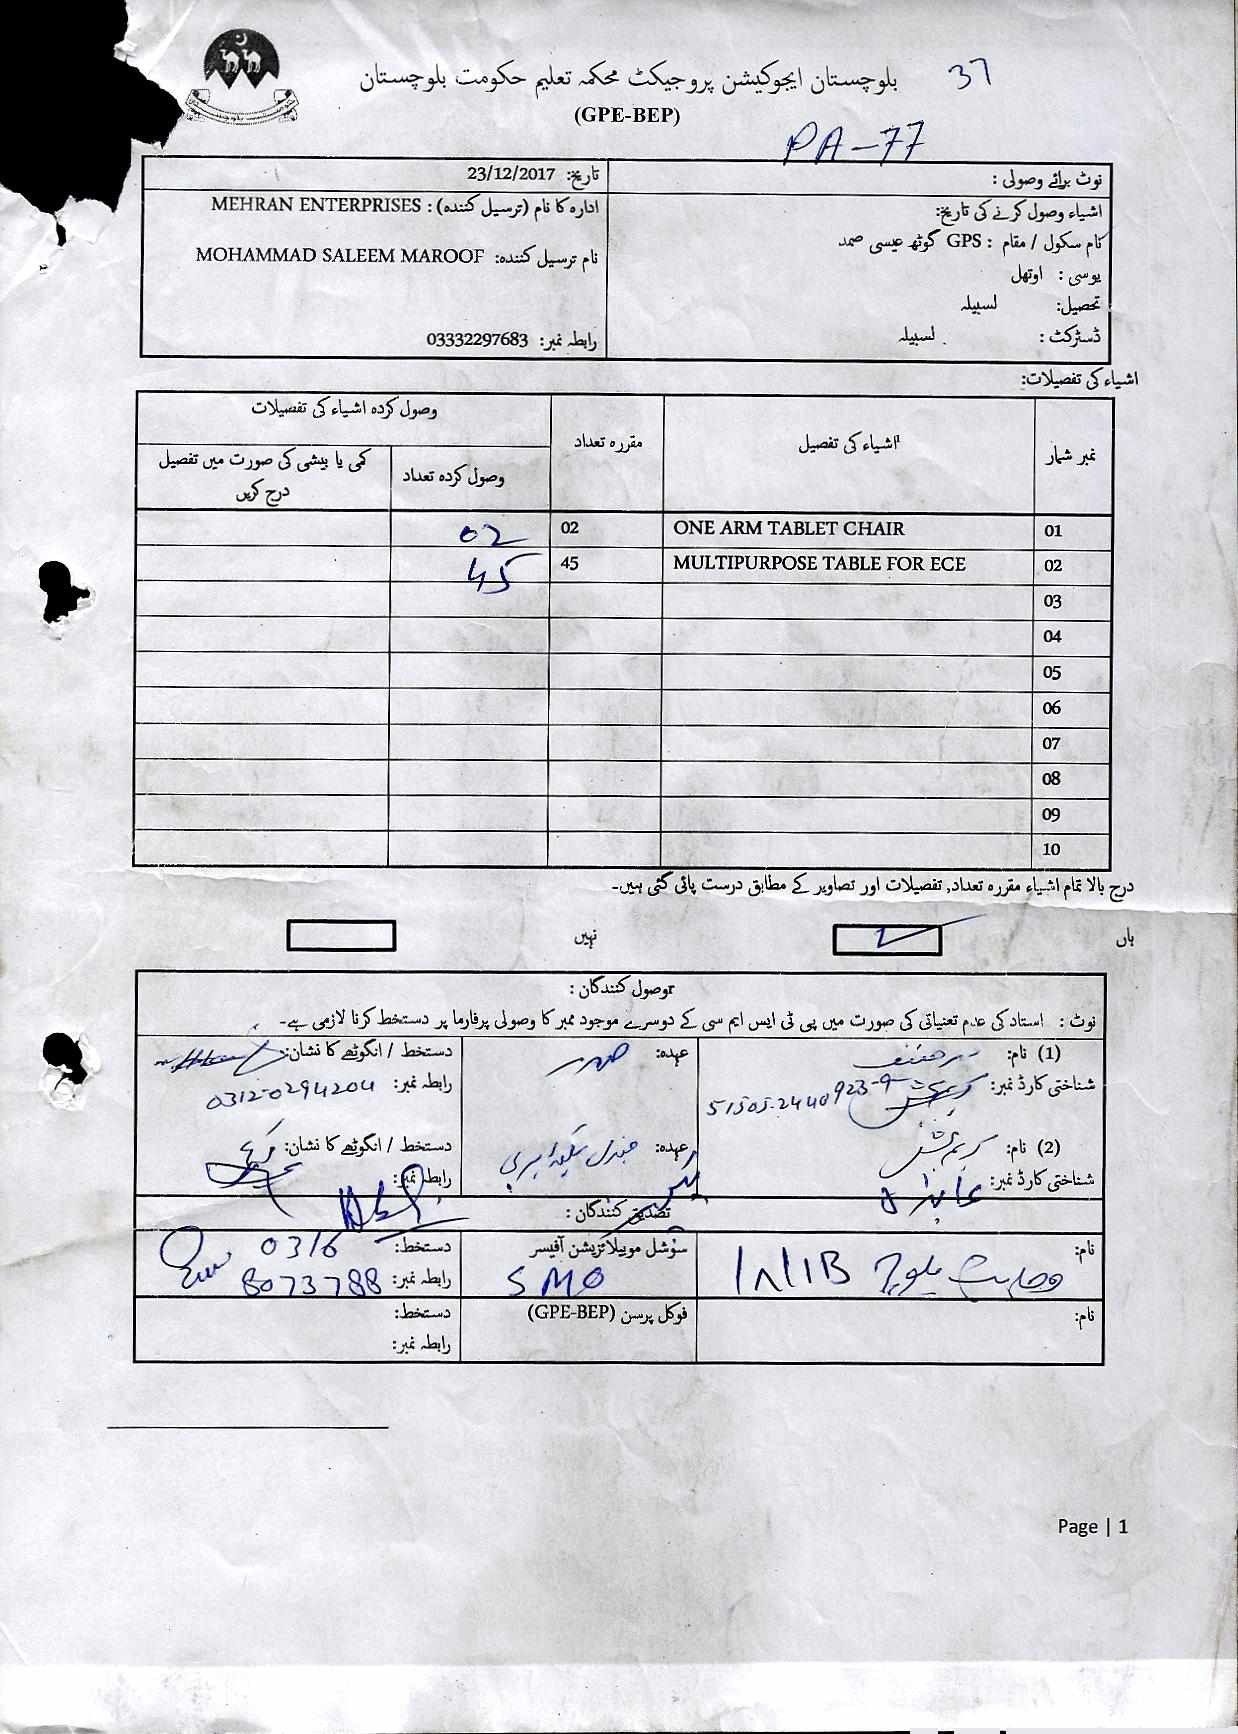 بلوچستان ایجوکیشن پروجیکٹ محکمہ تعلیم حکومت بلوچستان
37
(GPE-BEP)
PA-77
نوٹ برائے وصولی :
تاریخ: 23/12/2017
اشیاء وصول کرنے کی تاریخ:
ادارہ کا نام (ترسیل کنندہ) : MEHRAN ENTERPRISES
نام سکول / مقام : GPS گوٹھ عیسی صمد
نام ترسیل کنندہ: MOHAMMAD SALEEM MAROOF
یوسی : اوتھل
تحصیل: لسبیلہ
ڈسٹرکٹ : لسبیلہ
رابطہ نمبر: 03332297683
اشیاء کی تفصیلات:
نمبر شمار اشیاء کی تفصیل مقررہ تعداد وصول کردہ اشیاء کی تفصیلات
وصول کردہ تعداد کمی یا بیشی کی صورت میں تفصیل درج کریں
01 ONE ARM TABLET CHAIR 02 02
02 MULTIPURPOSE TABLE FOR ECE 45 45
03
04
05
06
07
08
09
10
درج بالا تمام اشیاء مقررہ تعداد, تفصیلات اور تصاویر کے مطابق درست پائی گئی ہیں۔
ہاں نہیں
وصول کنندگان :
نوٹ : استاد کی عدم تعنیاتی کی صورت میں پی ٹی ایس ایم سی کے دوسرے موجود ممبر کا وصولی پرفارما پر دستخط کرنا لازمی ہے۔
(1) نام: عہدہ: صدر دستخط / انگوٹھے کا نشان:
شناختی کارڈ نمبر: 51505-2440923-9 رابطہ نمبر: 0312-0294204
(2) نام: کریم بخش عہدہ: جنرل سیکریٹری دستخط / انگوٹھے کا نشان:
شناختی کارڈ نمبر: رابطہ نمبر:
تصدیق کنندگان :
نام: بلوچ سوشل موبیلائزیشن آفیسر دستخط:
SMO رابطہ نمبر: 0316 8073788
نام: فوکل پرسن (GPE-BEP) دستخط:
رابطہ نمبر:
Page | 1